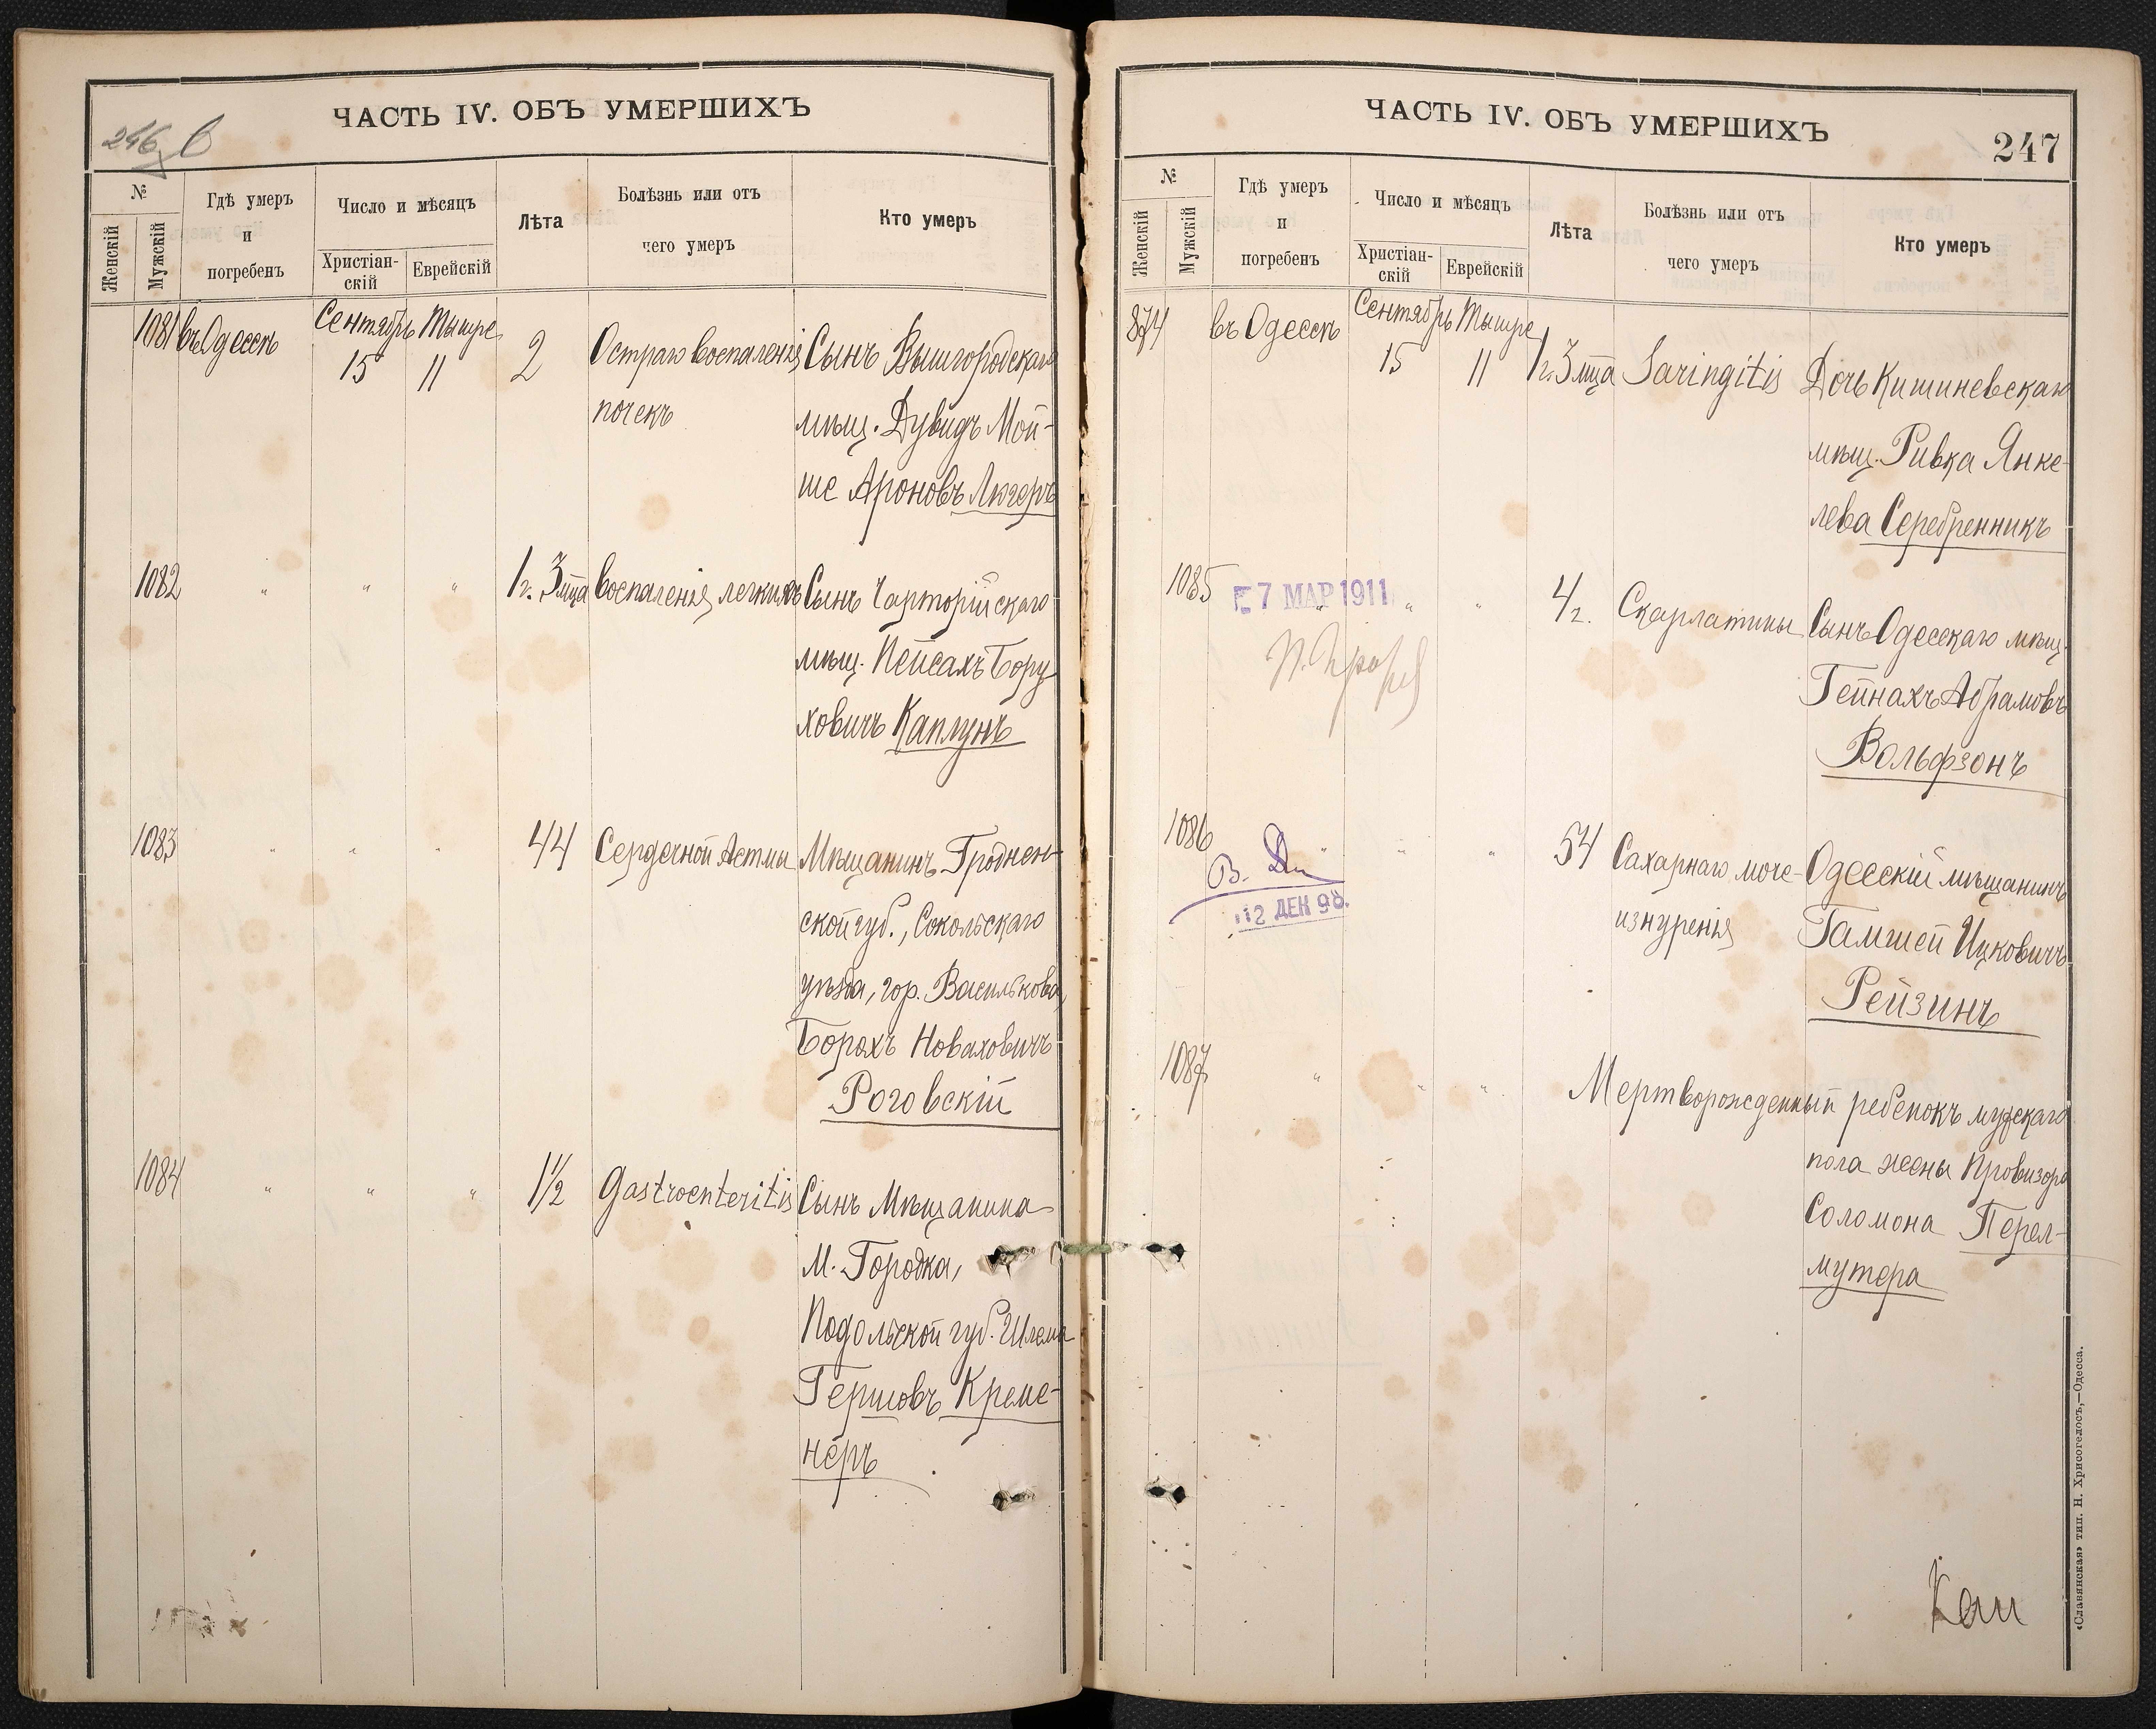 ЧАСТЬ IV. ОБЪ УМЕРШИХЪ
246
№
Женскій
Мужскій
Гдѣ умеръ
и
погребенъ
Число и мѣсяцъ
Христіан-
скій
Еврейскій
Лѣта
Болѣзнь или отъ
чего умеръ
Кто умеръ
1081 въ Одессѣ Сентябрь 15 Тышре 11 2 Остраго воспаленія Сынъ Вышгородскаго
почекъ мѣщ. Дувидъ Мой-
ше Ароновъ Люгеръ
1082 " " " 1 г. 3 мца Воспаленія легкихъ Сынъ Чарторійскаго
мѣщ. Пейсахъ Бору-
ховичъ Каплунъ
1083 " " " 44 Сердечной Астмы Мѣщанинъ Гроднен-
ской губ., Сокольскаго
уѣзда, гор. Василькова,
Борохъ Новаховичъ
Роговскій
1084 " " " 1½ Gastroenteritis Сынъ Мѣщанина
М. Городка,
Подольской губ. Шлема
Гершовъ Креме-
неръ
ЧАСТЬ IV. ОБЪ УМЕРШИХЪ
247
№
Женскій
Мужскій
Гдѣ умеръ
и
погребенъ
Число и мѣсяцъ
Христіан-
скій
Еврейскій
Лѣта
Болѣзнь или отъ
чего умеръ
Кто умеръ
874 въ Одессѣ Сентябрь 15 Тышре 11 1 г. 3 мца Laringitis Дочь Кишиневскаго
мѣщ. Ривка Янке-
лева Серебренникъ
1085 " " " 4 г. Скарлатины Сынъ Одесскаго мѣщ.
7 МАР 1911
Гейнахъ Абрамовъ
Вольфзонъ
1086 " " " 54 Сахарнаго моче- Одесскій мѣщанинъ
12 ДЕК 98.
изнуренія Гамшей Ицковичъ
Рейзинъ
1087 " " " Мертворожденный ребенокъ мужскаго
пола жены Провизора
Соломона Перел-
мутера
«Славянская» тип. Н. Хрисогелосъ,—Одесса.